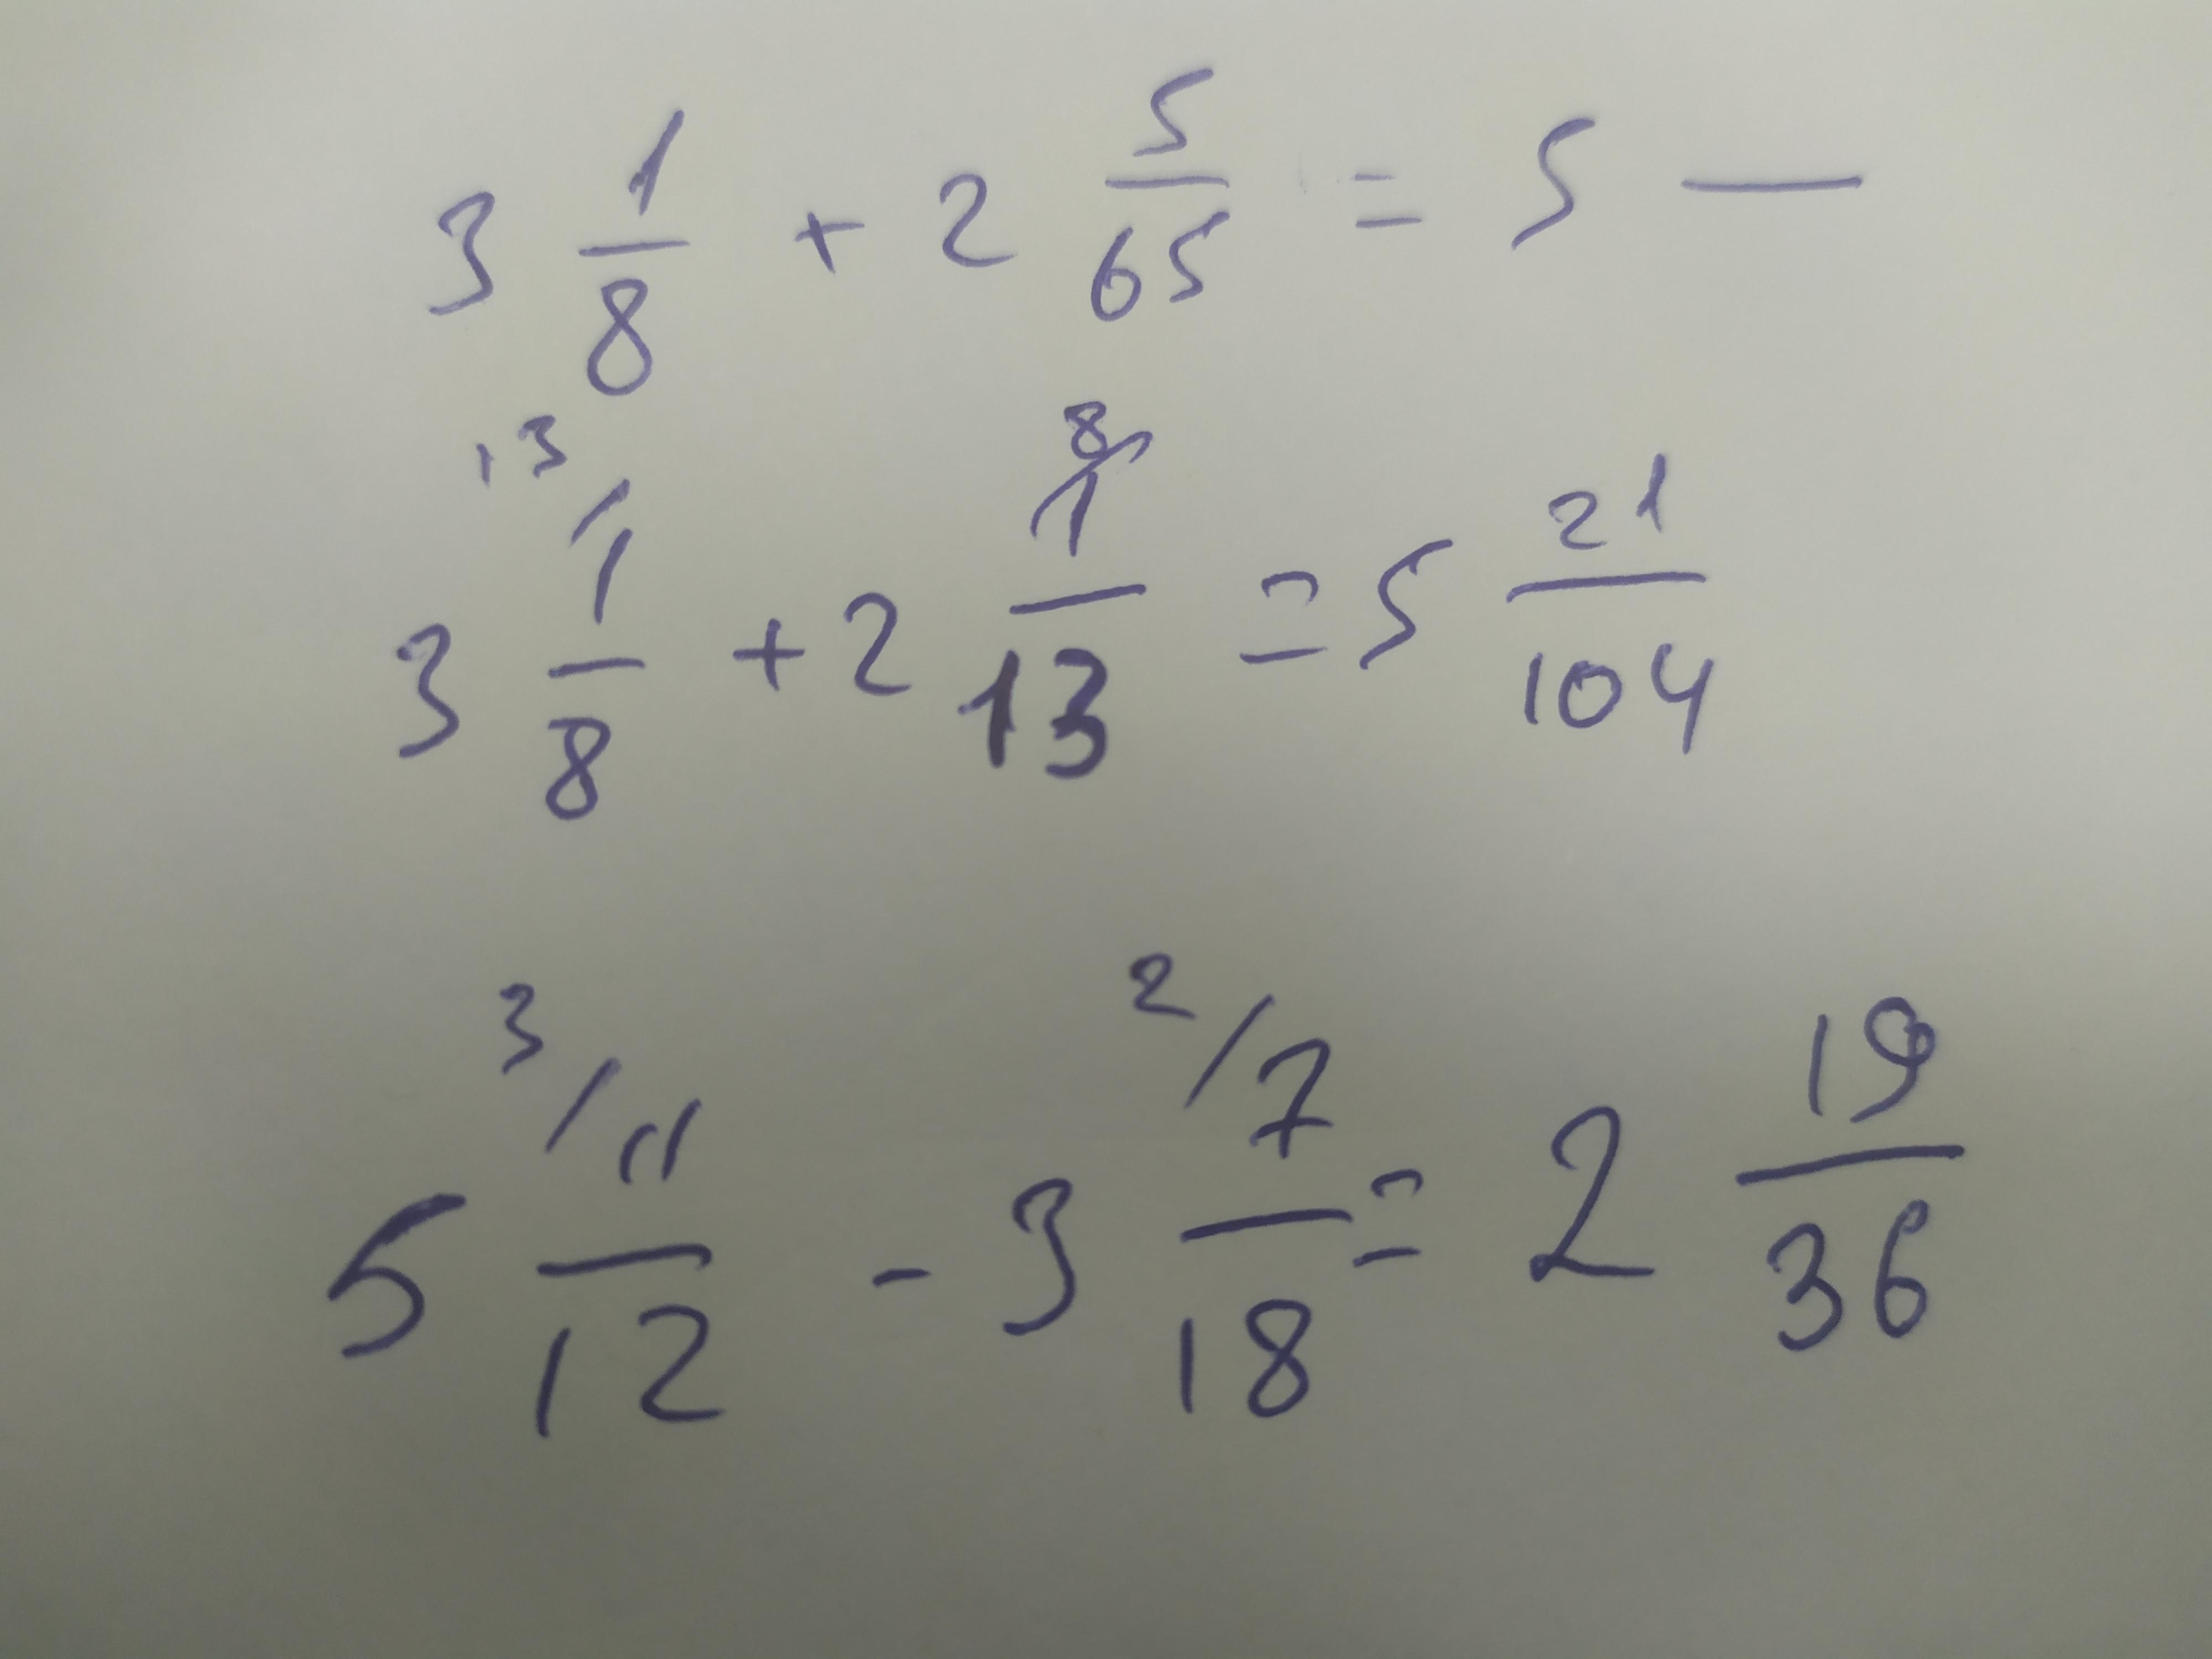 3 1/8 + 2 5/65 = 5 —
3 13/1/8 + 2 8/1/13 = 5 21/104
5 3/11/12 - 3 2/7/18 = 2 19/36